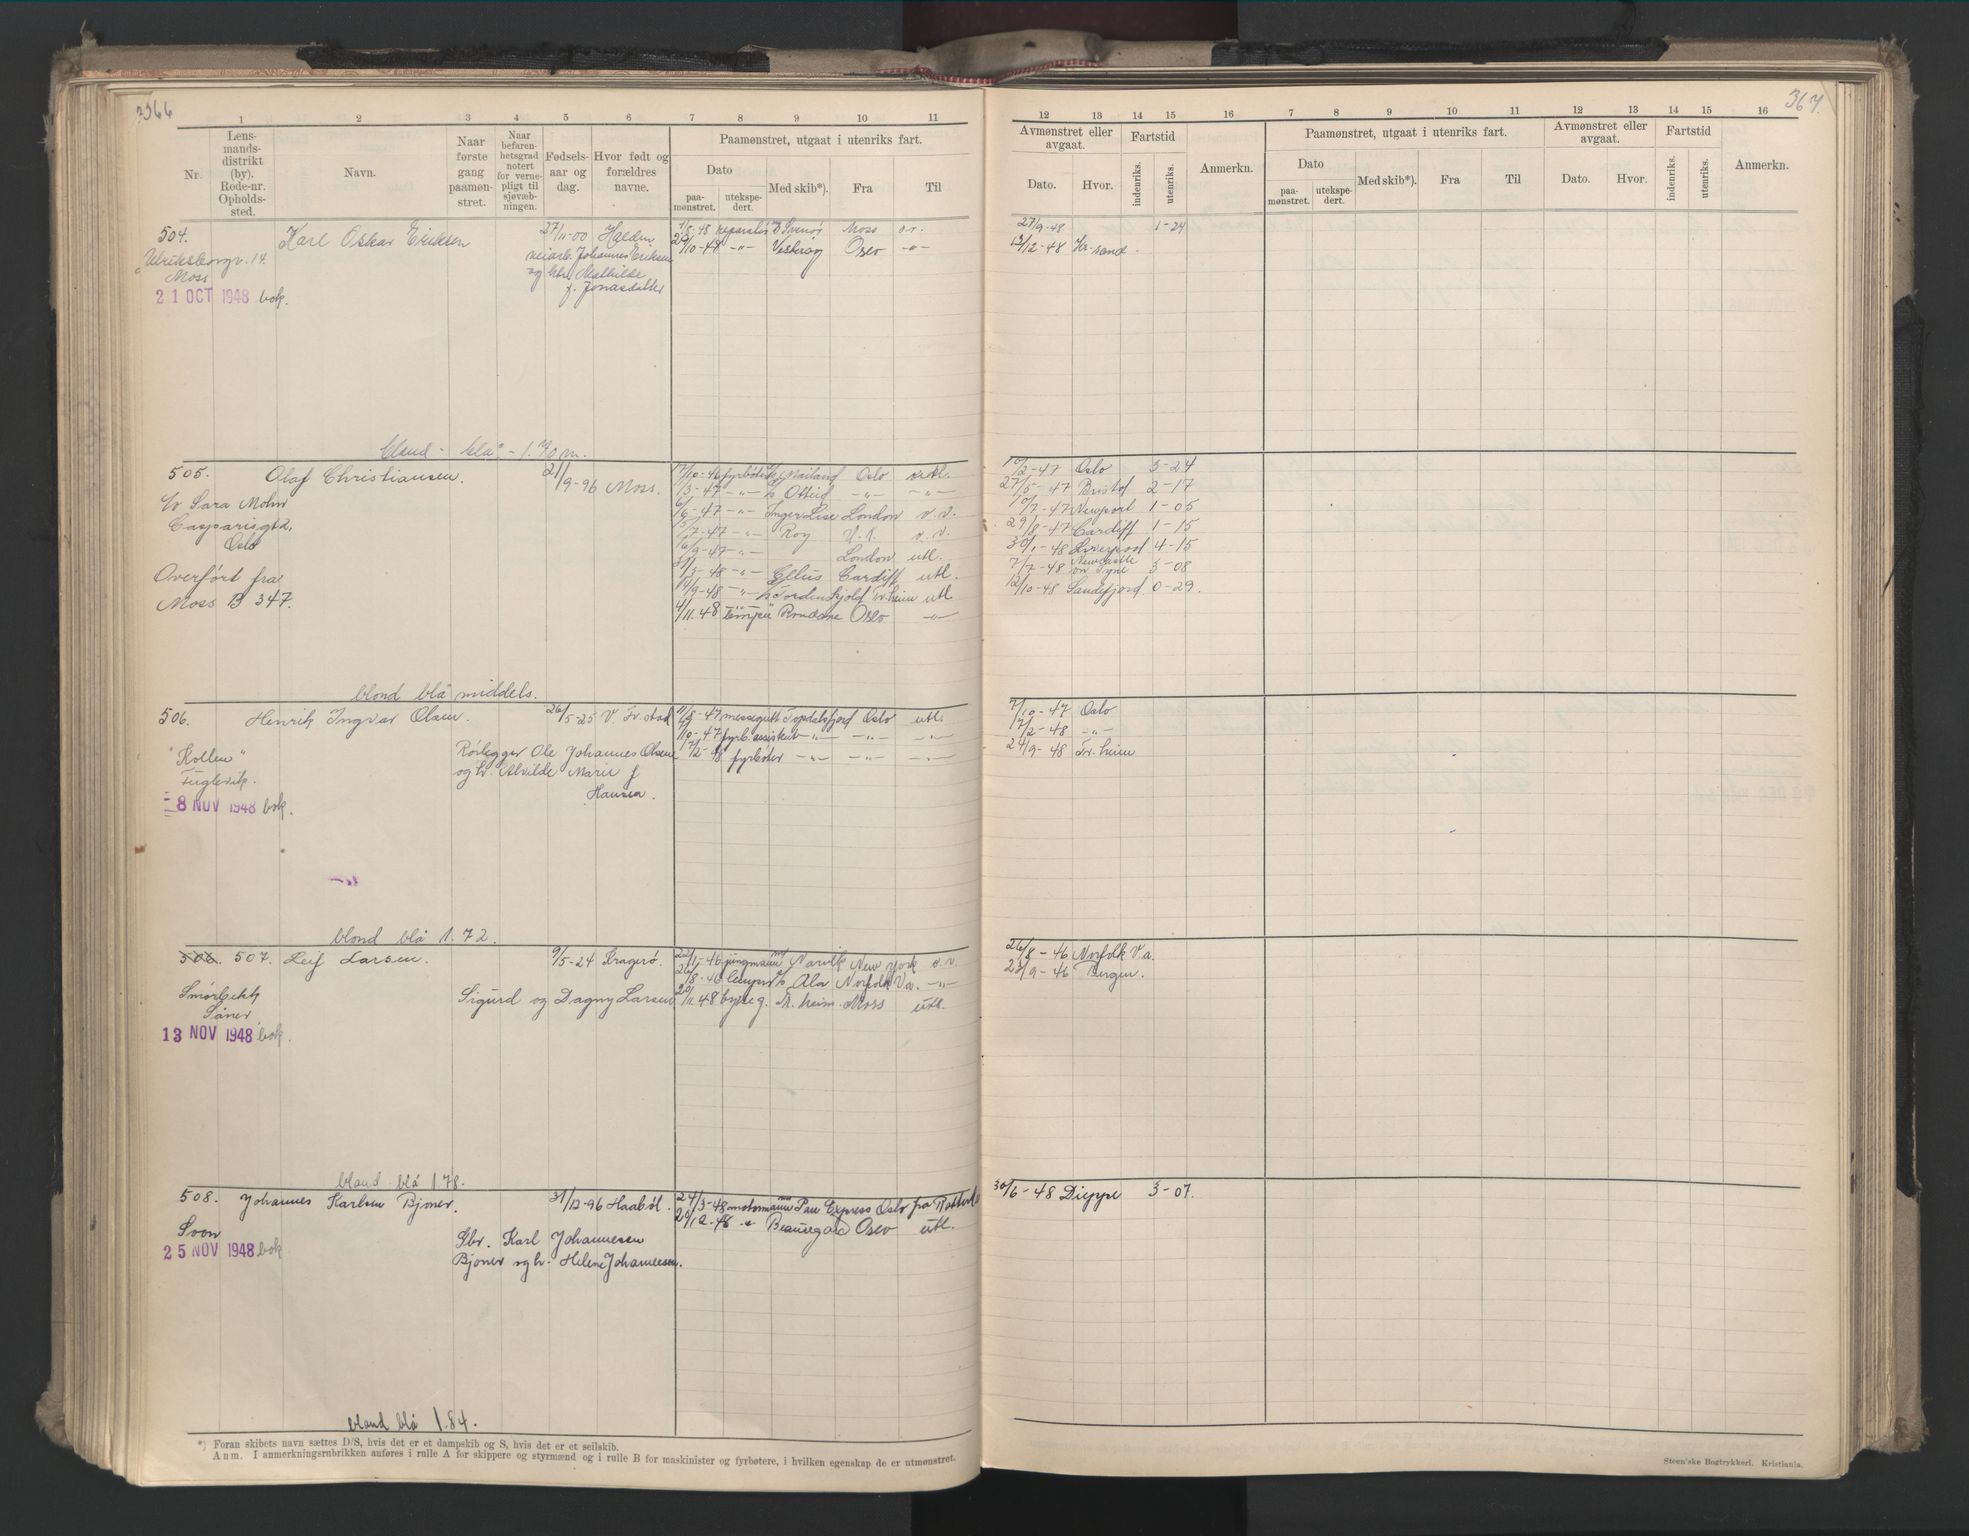 366
1 2 3 4 5 6 7 8 9 10 11
Nr. Lens-
mands-
distrikt
(by).
Rode-nr.
Opholds-
sted.
Navn.
Naar
første
gang
paamøn-
stret.
Naar
befaren-
hetsgrad
notert
for verne-
pligt til
sjøvæb-
ningen.
Fødsels-
aar og
dag.
Hvor født og
forældres
navne.
Paamønstret, utgaat i utenriks fart.
Dato
paa-
mønstret.
utekspe-
dert.
Med skib*).
Fra
Til
504. Karl Oskar Eriksen 27/11-00 Halden
Ulriksborgv. 14. veiarb. Johannes Eriksen
Moss og htr. Mathilde
21 OCT 1948 bok. f. Jonasdatter
1/8-48 reparatør Svenør Moss o.v.
20/10-48 -"- Vesterøy Oslo -"-
bland - blå - 1.70 m.
505. Olaf Christiansen. 21/9-96 Moss.
c/o Sara Mohn
Casparisgt 2,
Oslo
Overført fra
Moss B 347.
17/10-46 fyrbøter Mailand Oslo utl.
1/3-47 -"- Otteid -"- -"-
6/6-47 -"- Inger Lise London v.v.
5/7-47 -"- Roy v.v.
6/9-47 -"- London utl.
/3-48 -"- Ellus Cardiff utl.
14/9-48 -"- Tordenskjold Tr.heim utl
4/11.48 Rondane Oslo -"-
blond blå middels.
506. Henrik Ingvar Olsen. 26/5-25 V. Fr.stad
"Kollen" Rørlegger Ole Johannes Olsen
Fuglevik. og h. Alvilde Marie f
8 NOV 1948 bok. Hansen.
11/8-47 messegutt Topdalsfjord Oslo utl.
/10-47 fyrb.assistent -"- -"- -"-
17/2-48 fyrbøter -"- -"- -"-
blond blå 1.72.
506. 507. Leif Larsen. 9/5-24 Kragerø.
Smørbekk Sigurd og Dagny Larsen
Såner
13 NOV 1948 bok.
22/1-46 jungmann Narvik New York v.v.
26/8-46 Ala Norfolk Va. -"-
20/11.48 byssg. Tr.heim. Moss utl.
bland blå 1.78.
508. Johannes Karlsen Bjoner. 31/12-96 Haabøl.
Soon Gbr. Karl Johannesen
25 NOV 1948 bok Bjoner og h. Helene Johannesen.
24/3-48 motormann Pan Express Oslo fra
20/12-48 -"- Beauregard Oslo utl.
bland blå 1.84.
*) Foran skibets navn sættes D/S, hvis det er et dampskib og S, hvis det er et seilskib.
Anm. I anmerkningsrubrikken anføres i rulle A for skippere og styrmænd og i rulle B for maskinister og fyrbøtere, i hvilken egenskap de er utmønstret.
367.
12 13 14 15 16 7 8 9 10 11 12 13 14 15 16
Avmønstret eller
avgaat.
Dato. Hvor.
Fartstid
indenriks. utenriks.
Anmerkn.
Paamønstret, utgaat i utenriks fart.
Dato
paa-
mønstret.
utekspe-
dert.
Med skib*).
Fra
Til
Avmønstret eller
avgaat.
Dato. Hvor.
Fartstid
indenriks. utenriks.
Anmerkn.
27/9-48 1-24
13/12-48 Kr.sand.
10/2-47 Oslo 3-24
27/5-47 Bristol 2-17
10/7-47 Newport 1-05
29/8-47 Cardiff 1-15
30/1-48 Liverpool 4-15
7/7-48 Newcastle on Tyne 3-08
12/10-48 Sandefjord 0-29.
7/10-47 Oslo
17/2-48 -"-
24/9-48 Tr.heim
26/8-46 Norfolk V.a.
23/9-46 Bergen.
30/6-48 Dieppe 3-07.
Steen'ske Bogtrykkeri. Kristiania.